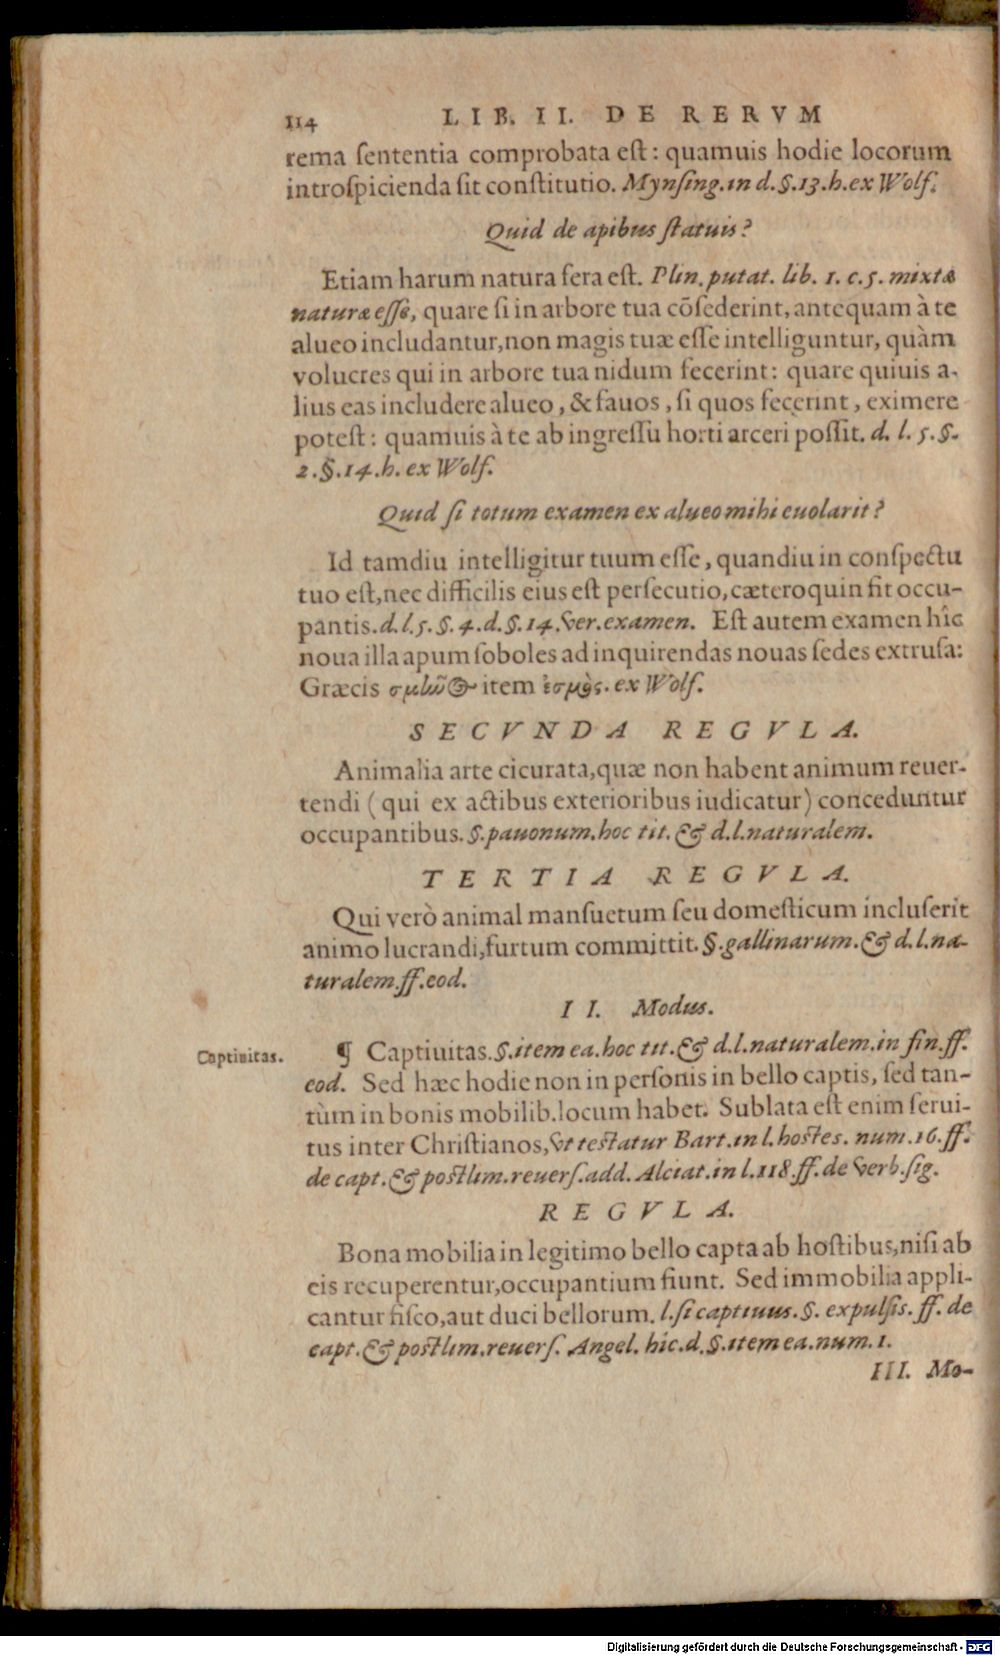 114 LIB. II. DE RERVM
rema ſententia comprobata eſt: quamuis hodie locorum
introſpicienda ſit conſtitutio. Mynſing. in d. §. 13. h. ex Wolf.
Quid de apibus ſtatuis?
Etiam harum natura fera eſt. Plin. putat. lib. 1. c. 5. mixtæ
naturæ eſſe, quare ſi in arbore tua cõſederint, antequam à te
alueo includantur, non magis tuæ eſſe intelliguntur, quàm
volucres qui in arbore tua nidum fecerint: quare quiuis a-
lius eas includere alueo, & fauos, ſi quos fecerint, eximere
poteſt: quamuis à te ab ingreſſu horti arceri poſſit. d. l. 5. §.
2. §. 14. h. ex Wolf.
Quid ſi totum examen ex alueo mihi euolarit?
Id tamdiu intelligitur tuum eſſe, quandiu in conſpectu
tuo eſt, nec difficilis eius eſt perſecutio, cæteroquin fit occu-
pantis. d. l. 5. §. 4. d. §. 14. ver. examen. Eſt autem examen hîc
noua illa apum ſoboles ad inquirendas nouas ſedes extruſa:
Græcis item ἑσμὸς. ex Wolf.
SECVNDA REGVLA.
Animalia arte cicurata, quæ non habent animum reuer-
tendi (qui ex actibus exterioribus iudicatur) conceduntur
occupantibus. §. pauonum. hoc tit. & d. l. naturalem.
TERTIA REGVLA.
Qui verò animal manſuetum ſeu domeſticum incluſerit
animo lucrandi, furtum committit. §. gallinarum. & d. l. na-
turalem. ff. eod.
II. Modus.
Captiuitas.
¶ Captiuitas. §. item ea. hoc tit. & d. l. naturalem. in fin. ff.
eod. Sed hæc hodie non in perſonis in bello captis, ſed tan-
tùm in bonis mobilib. locum habet. Sublata eſt enim ſerui-
tus inter Chriſtianos, vt teſtatur Bart. in l. hoſtes. num. 16. ff.
de capt. & poſtlim. reuerſ. add. Alciat. in l. 118. ff. de verb. ſig.
REGVLA.
Bona mobilia in legitimo bello capta ab hoſtibus, niſi ab
eis recuperentur, occupantium fiunt. Sed immobilia appli-
cantur fiſco, aut duci bellorum. l. ſi captiuus. §. expulſis. ff. de
capt. & poſtlim. reuerſ. Angel. hic. d. §. item ea. num. 1.
III. Mo-
Digitalisierung gefördert durch die Deutsche Forschungsgemeinschaft - DFG